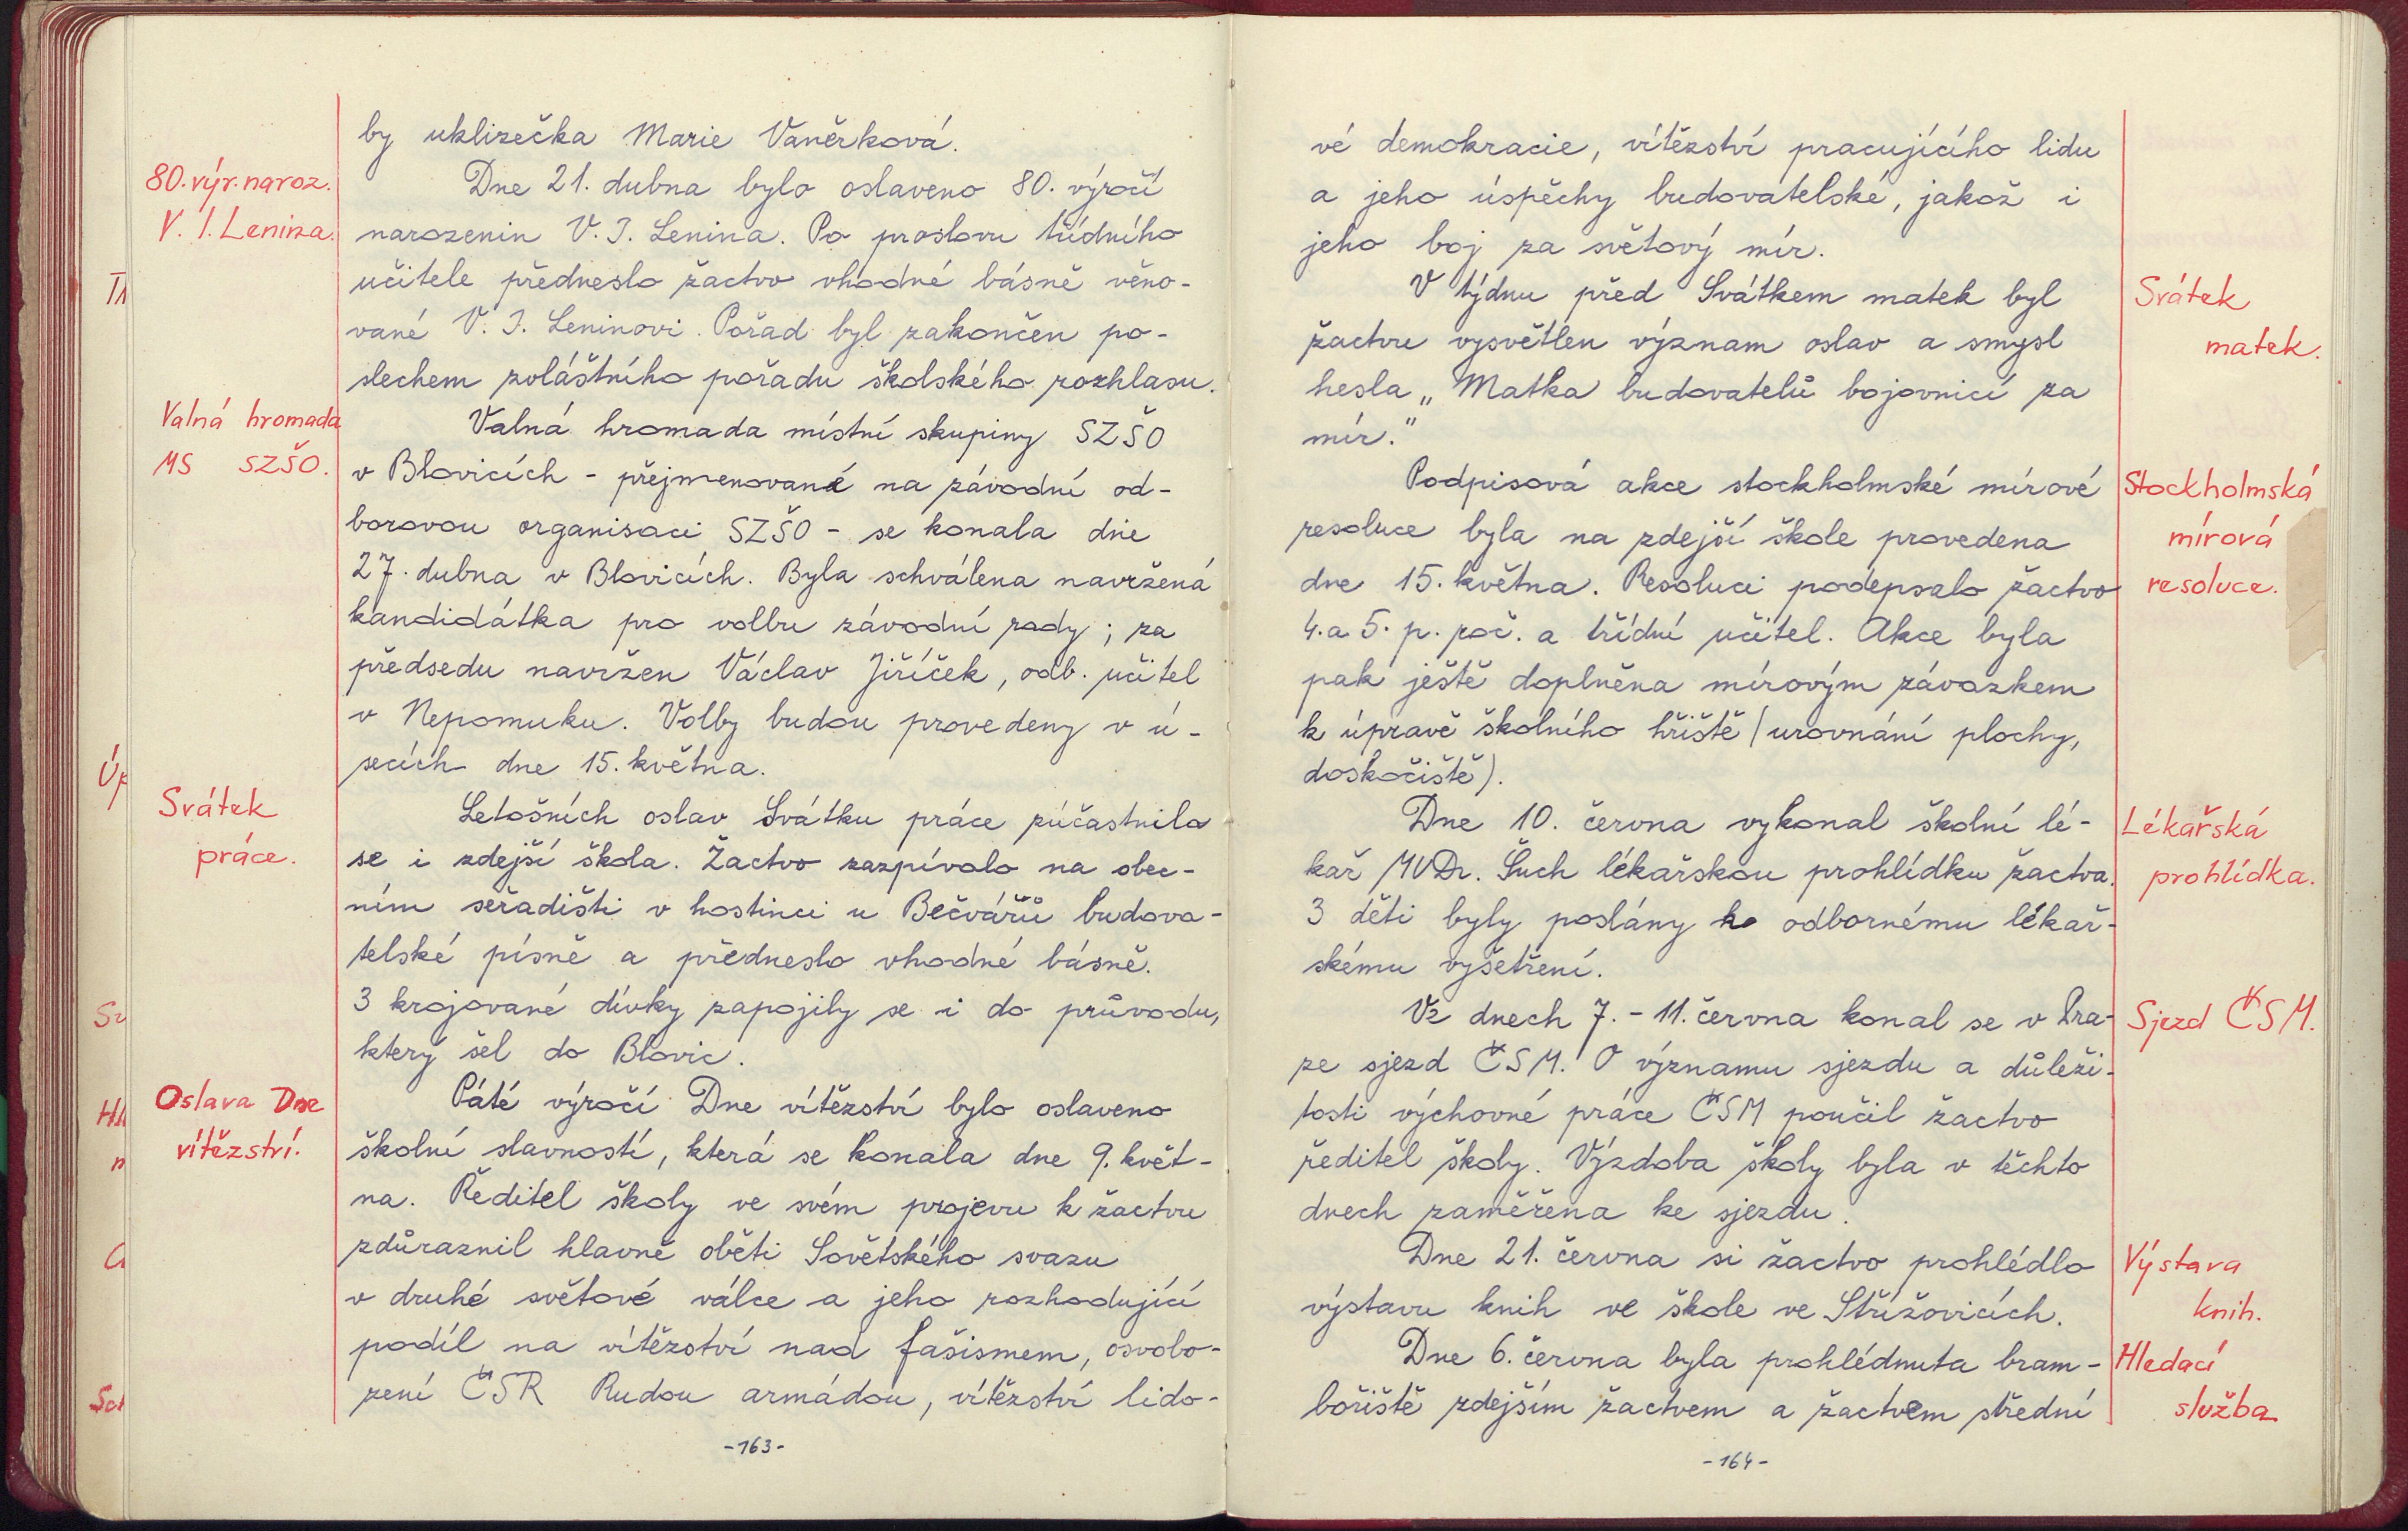 by uklizečka Marie Vaněrková.
80. výr. naroz.
Dne 21. dubna bylo oslaveno 80. výročí
V. I. Lenina.
narozenin V. I. Lenina. Po proslovu třídního
učitele předneslo žactvo vhodné básně věno-
vané V. I. Leninovi. Pořad byl zakončen po-
slechem zvláštního pořadu školského rozhlasu.
Valná hromada
Valná hromada místní skupiny SZŠO
MS SZŠO.
v Blovicích - přejmenované na závodní od-
borovou organisaci SZŠO - se konala dne
27. dubna v Blovicích. Byla schválena navržená
kandidátka pro volbu závodní rady; za
předsedu navržen Václav Jiříček, odb. učitel
v Nepomuku. Volby budou provedeny v ú-
secích dne 15. května.
Svátek
Letošních oslav Svátku práce zúčastnila
práce.
se i zdejší škola. Žactvo zazpívalo na obec-
ním seřadišti v hostinci u Bečvářů budova-
telské písně a předneslo vhodné básně.
3 krojované dívky zapojily se i do průvodu,
který šel do Blovic.
Oslava Dne
Páté výročí Dne vítězství bylo oslaveno
vítězství.
školní slavností, která se konala dne 9. květ-
na. Ředitel školy ve svém projevu k žactvu
zdůraznil hlavně oběti Sovětského svazu
v druhé světové válce a jeho rozhodující
podíl na vítězství nad fašismem, osvobo-
zení ČSR Rudou armádou, vítězství lido-
-163-
vé demokracie, vítězství pracujícího lidu
a jeho úspěchy budovatelské, jakož i
jeho boj za světový mír.
V týdnu před Svátkem matek byl
Svátek
žactvu vysvětlen význam oslav a smysl
matek.
hesla „Matka budovatelů bojovnicí za
mír."
Podpisová akce stockholmské mírové
Stockholmská
resoluce byla na zdejší škole provedena
mírová
dne 15. května. Resoluci podepsalo žactvo
resoluce.
4. a 5. p. roč. a třídní učitel. Akce byla
pak ještě doplněna mírovým závazkem
k úpravě školního hřiště (urovnání plochy,
doskočiště).
Dne 10. června vykonal školní lé-
Lékařská
kař MUDr. Šuch lékařskou prohlídku žactva.
prohlídka.
3 děti byly poslány k odbornému lékař-
skému vyšetření.
Ve dnech 7. - 11. června konal se v Pra-
Sjezd ČSM.
ze sjezd ČSM. O významu sjezdu a důleži-
tosti výchovné práce ČSM poučil žactvo
ředitel školy. Výzdoba školy byla v těchto
dnech zaměřena ke sjezdu.
Dne 21. června si žactvo prohlédlo
Výstava
výstavu knih ve škole ve Střížovicích.
knih.
Dne 6. června byla prohlédnuta bram-
Hledací
bořiště zdejším žactvem a žactvem střední
služba
-164-